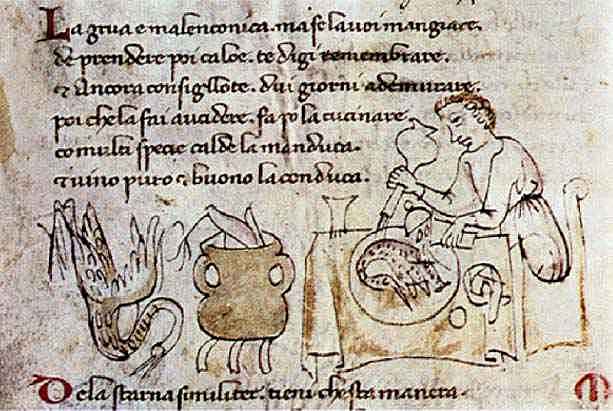 La grua e malenconica. ma se la voi mangiare.
de prendere poi caloe. te digi remembrare.
& Ancora consigllote. dui giorni ademurare.
poi che la fai aucidere. fa po la cucinare
co multi specie calde la manduca.
& uino puro & buono la conduca.
De la starna similiter. tieni chesta manera.
M